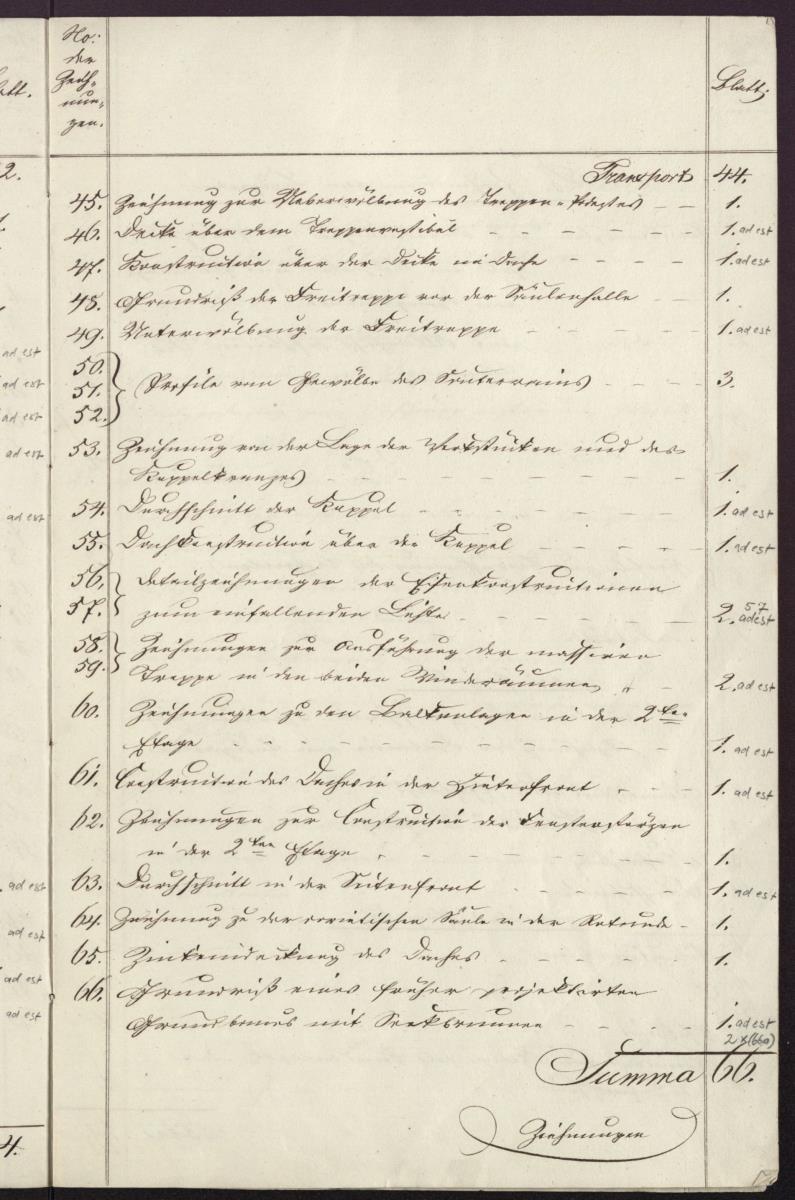 No:
der
Zeich-
nun-
gen.
Blatt.
Transport 44.
45. Zeichnung zur Ueberwölbung des Treppen-Podestes — — 1.
46. Decke über dem Treppenvestibül — — — — — 1. ad est
47. Construction über der Decke im Dache — — — — 1. ad est
48. Grundriß der Freitreppe vor der Säulenhalle — — 1.
49. Unterwölbung der Freitreppe — — — — — 1. ad est
50.
51. Profile vom Gewölbe des Souterrains — — — — 3.
52.
53. Zeichnung von der Lage der Werkstücken und des
Kuppelkranzes — — — — — — — — 1.
54. Durchschnitt der Kuppel — — — — — — 1. ad est
55. Dachconstruction über der Kuppel — — — — — 1. ad est
56. Detailzeichnungen der Eisenconstructionen
57. zum einfallenden Lichte — — — — — — 2. 57 ad est
58. Zeichnungen zur Ausführung der massiven
59. Treppe in den beiden — — 2. ad est
60. Zeichnungen zu den Balkenlagen in der 2ten
Etage — — — — — — — — — — 1. ad est
61. Construction des Daches in der Hinterfront — — — 1. ad est
62. Zeichnungen zur Construction der
in der 2ten Etage — — — — — — — 1.
63. Durchschnitt in der Seitenfront — — — — — 1. ad est
64. Zeichnung zu der corintischen Säule in der Rotunde — 1.
65. Zinkeindeckung des Daches — — — — — — 1.
66. Grundriß eines früher projektirten
Grundbaues mit Senkbrunnen — — — — 1. ad est
2 x (66a)
Summa 66.
Zeichnungen
att.
2.
ad est
ad est
ad est
ad est
ad est
ad est
ad est
ad est
ad est
4.